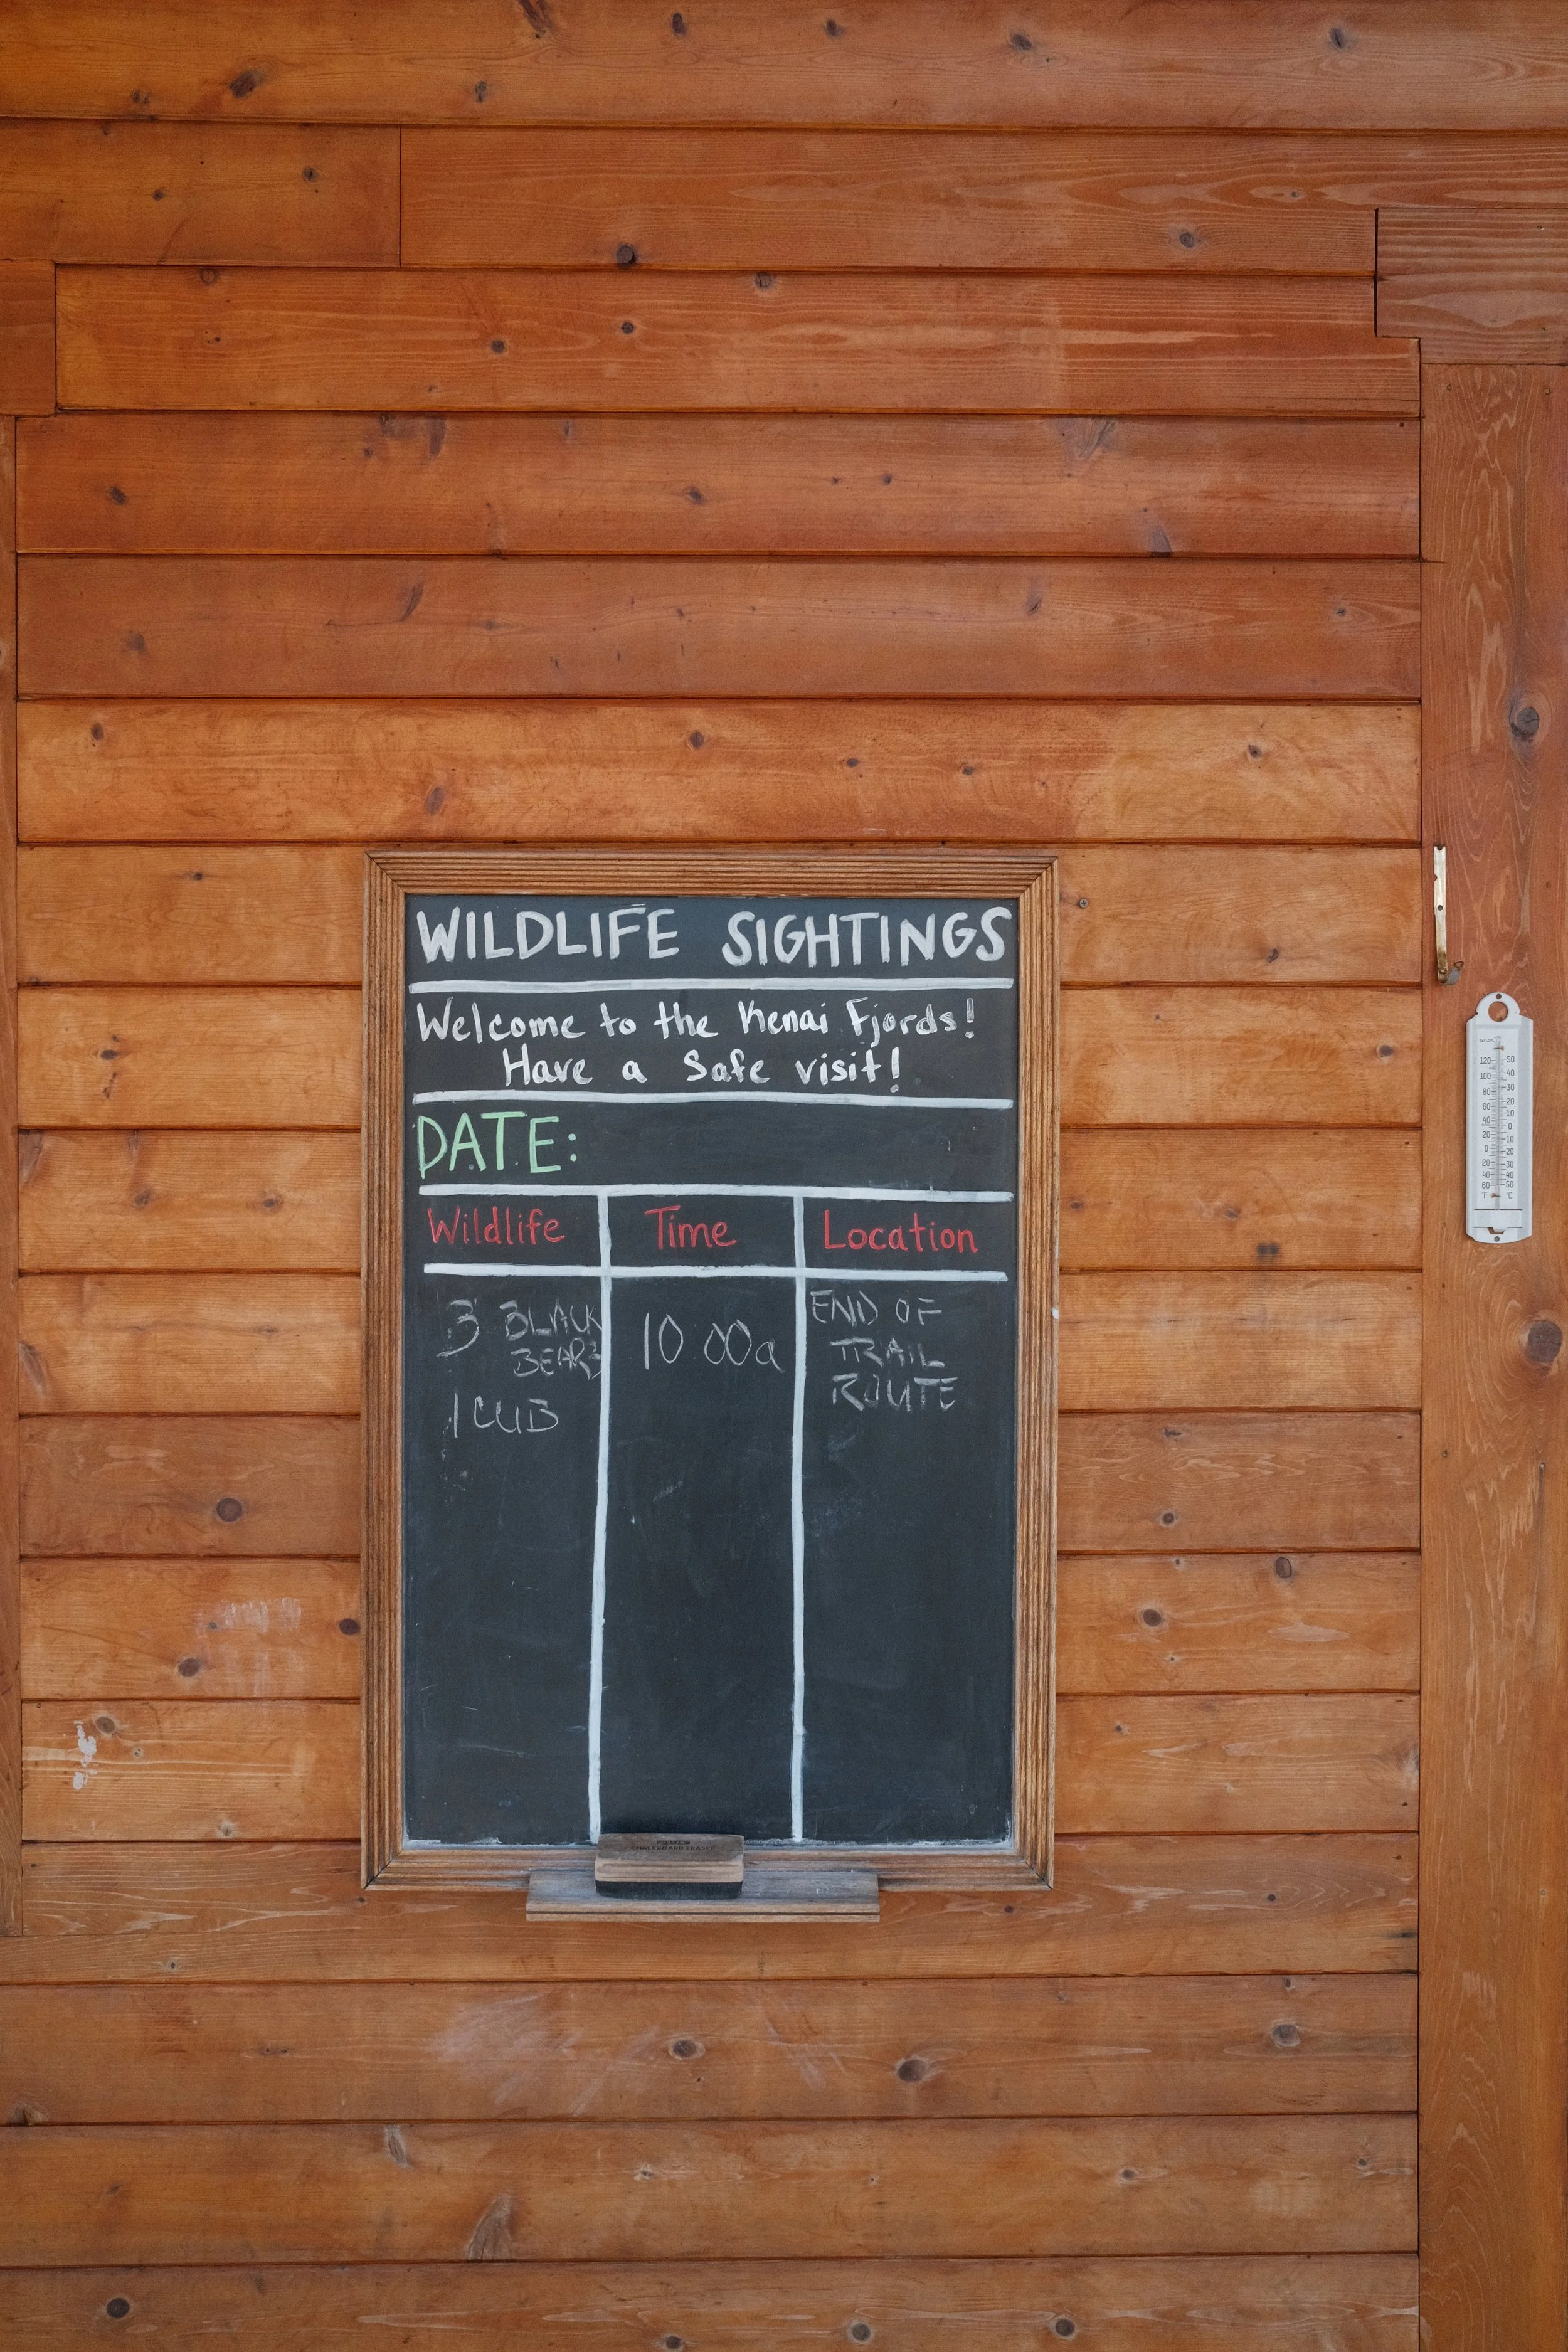 WILDLIFE SIGHTINGS
Welcome to the Kenai Fjords!
Have a Safe visit!
DATE:
Wildlife Time Location
3 BLACK BEARS
1 CUB
10 00a
END OF
TRAIL
ROUTE
120 50
100 40
80 30
60 20
40 10
20 0
0 10
20 20
40 30
60 40
50
°F °C